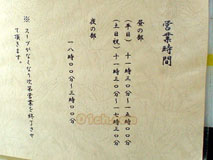 営業時間
昼の部
(平日)十一時三〇分〜一五時〇〇分
(土日祝)十一時三〇分〜一七時三〇分
夜の部
一八時〇〇分〜三時〇〇分
※スープがなくなり次第営業を終了させ
て頂きます。